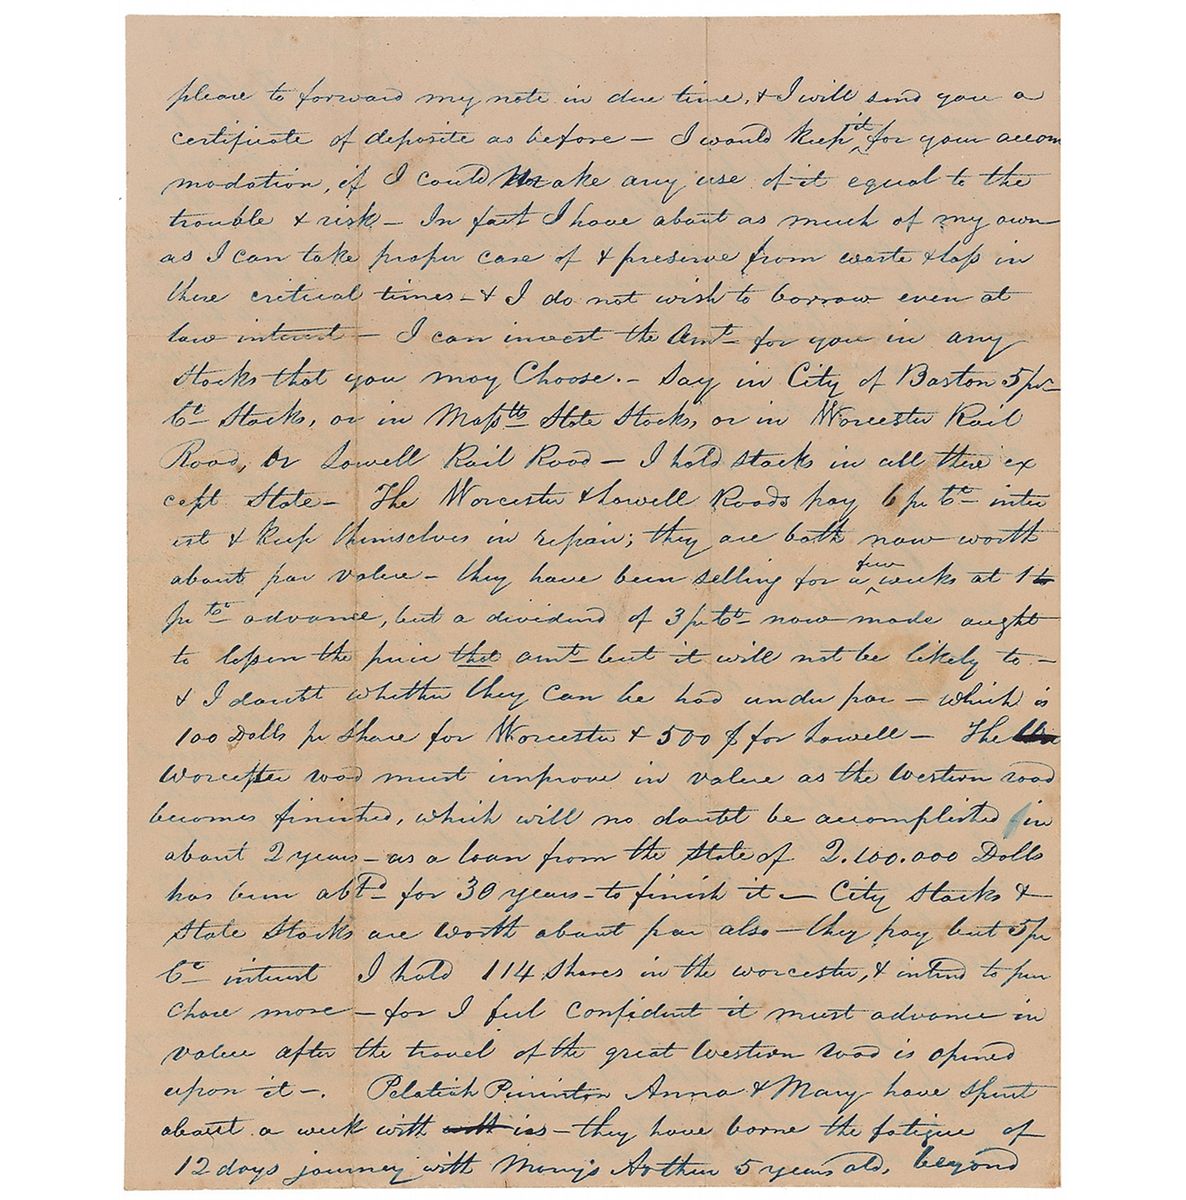 please to forward my note in due time, & I will send you a
certificate of deposite as before — I would keep it for your accom
modation, if I could make any use of it equal to the
trouble & risk — In fact I have about as much of my own
as I can take proper care of & preserve from waste & loss in
these critical times — & I do not wish to borrow even at
low interest — I can invest the amt. for you in any
Stocks that you may Choose. — Say in City of Boston 5 pr
Ct Stocks, or in Masstts State Stocks, or in Worcester Rail
Road, or Lowell Rail Road — I hold stocks in all these ex
cept State — The Worcester & Lowell Roads pay 6 pr Ct inter
est & keep themselves in repair; they are both now worth
about par value — they have been selling for a few weeks at 1
pr Ct advance, but a dividend of 3 pr Ct now made ought
to lessen the price that amt but it will not be likely to —
& I doubt whether they can be had under par — which is
100 Dolls pr Share for Worcester & 500 $ for Lowell — The
Worcester road must improve in value as the Western road
becomes finished, which will no doubt be accomplished in
about 2 years — as a loan from the State of 2.100.000 Dolls
has been abtd for 30 years — to finish it — City Stocks &
State Stocks are worth about par also — they pay but 5 pr
Ct interest I hold 114 Shares in the Worcester, & intend to pur
chase more — for I feel Confident it must advance in
value after the travel of the great Western road is opened
upon it —. Pelatiah Purinton Anna & Mary have spent
about a week with us — they have borne the fatigue of
12 days journey with Mary's Arthur 5 years old, beyond